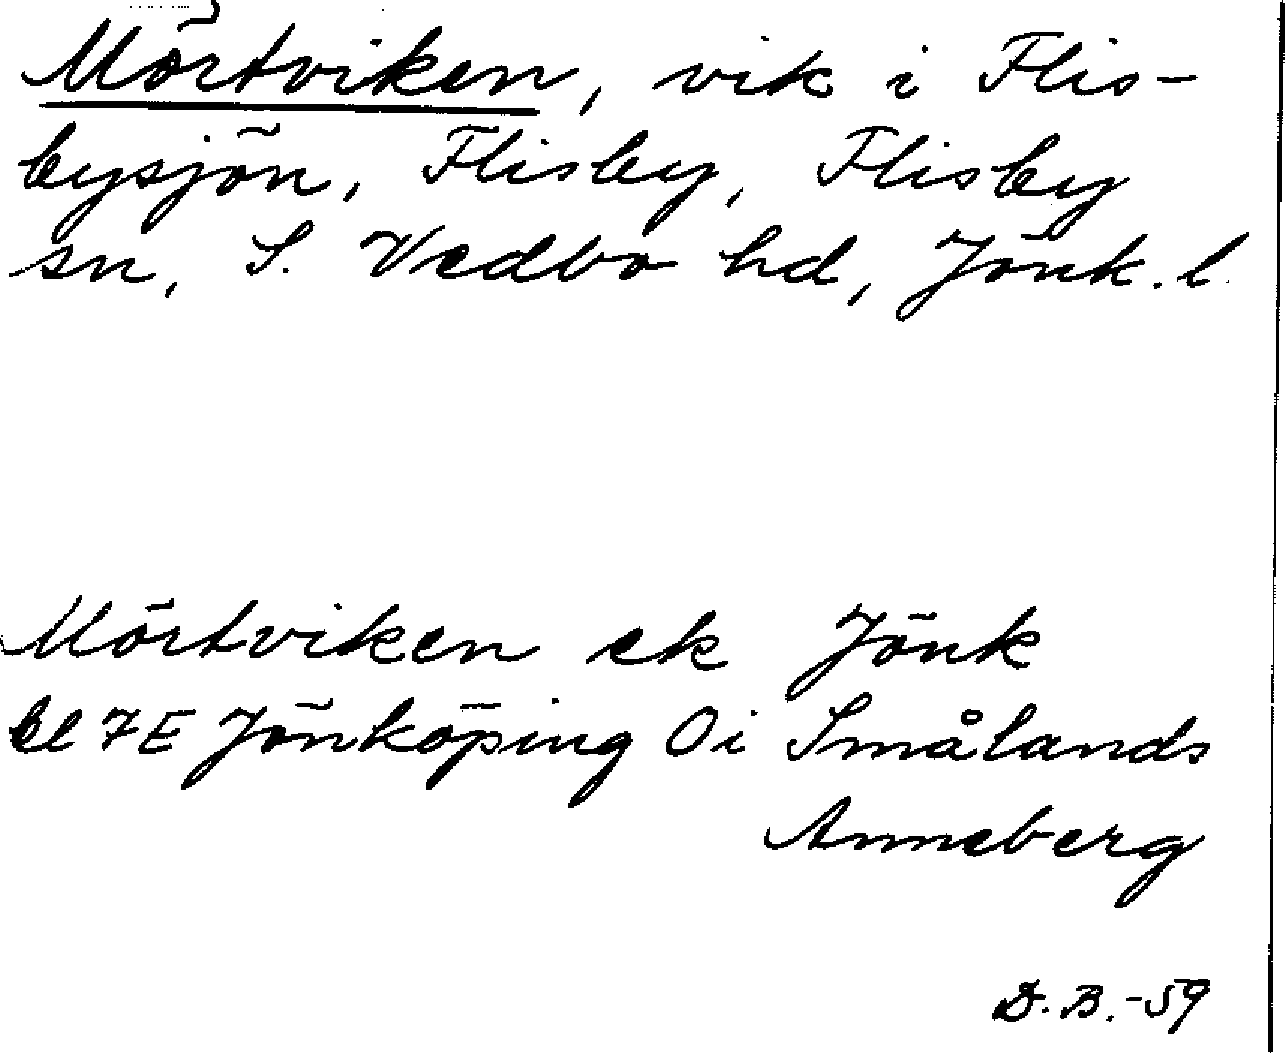 Mörtviken, vik i Flis-
bysjön, Flisby, Flisby
sn, S. Vedbo hd, Jönk. l.
Mörtviken ek Jönk
bl 7E Jönköping Oi Smålands
Anneberg
D.B.-59